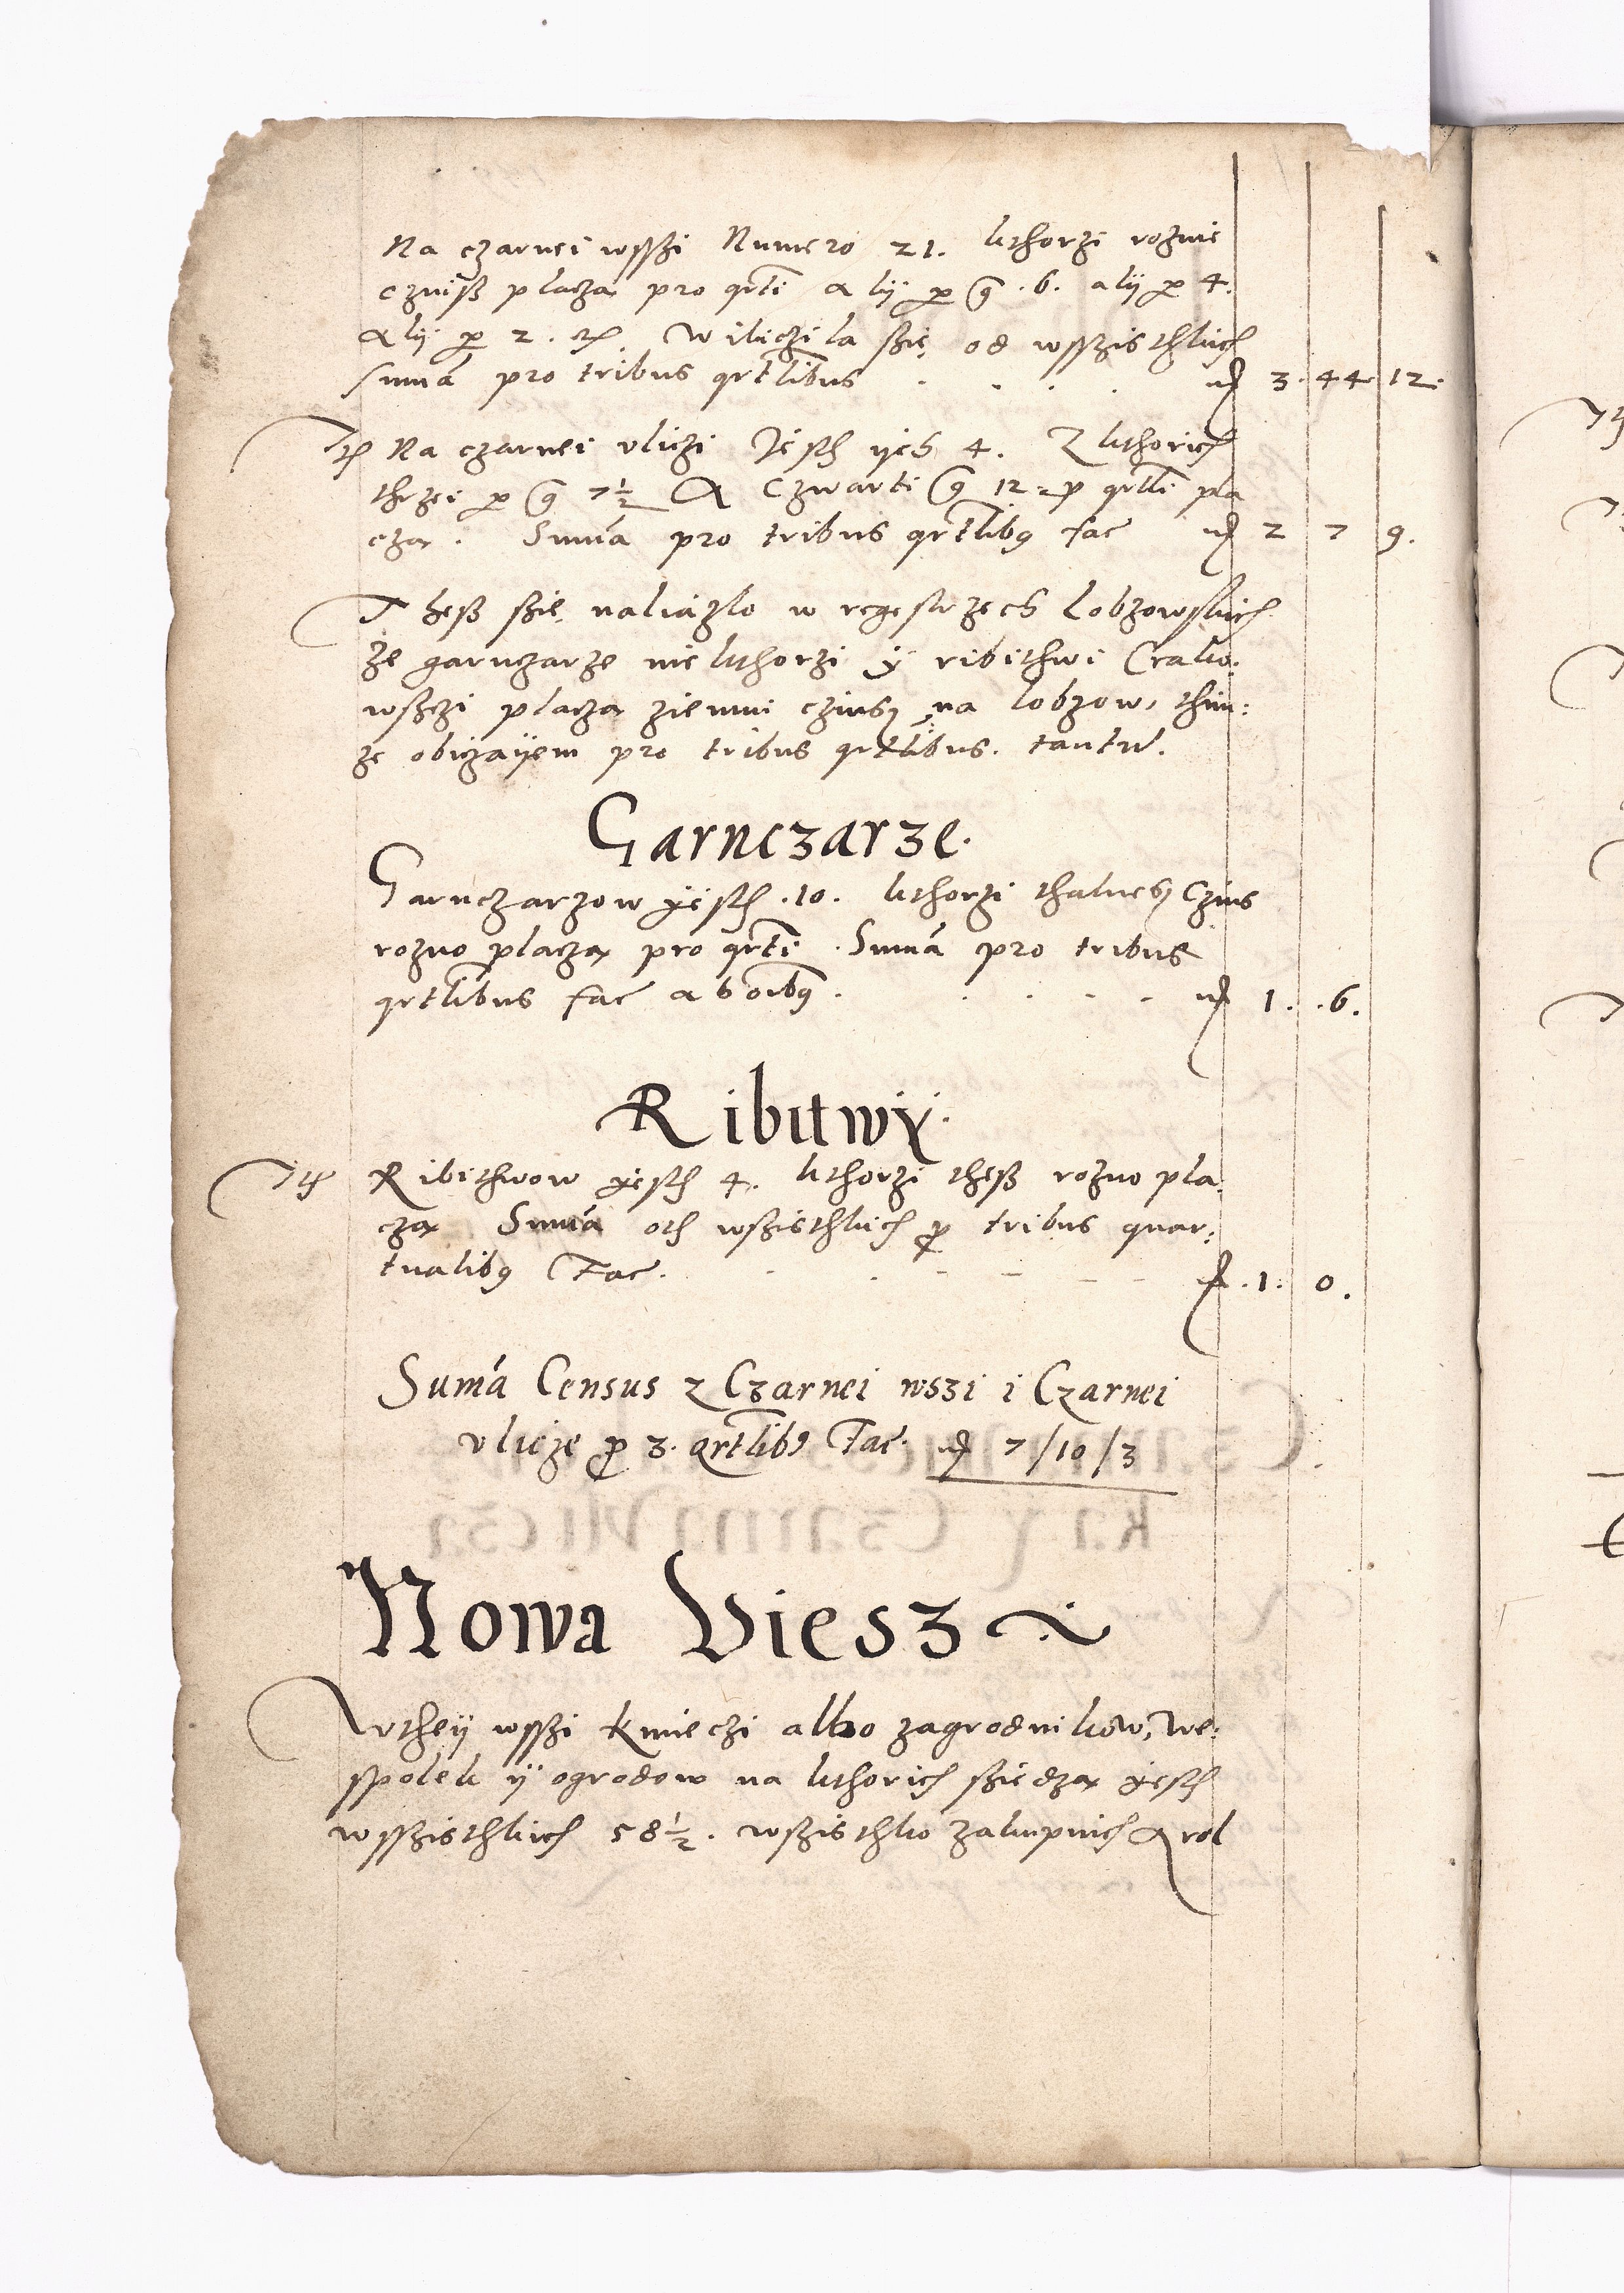 Na czarnei wsszi Numero 21. kthorzi roznie
czinß placza pro qrtli alij per g .6. alij per 4.
alij per 2. etc. Wiliczila ßię od wsszisthkich
summa pro tribus qrtlibus . . . . mr 3. 44. 12.
Itm Na czarnei uliczi Jesth ijch 4. Z kthorich
thrzei per g 7½ A Czwarti g 12 = p qrtli pla
cza. Summa pro tribus qrtlibq fac mr 2 7 9.
Theß ßię nalazlo w regestrzech Lobzowskich
że garnczarze niekthorzi ÿ ribithwi Crako:
wßczi placza ziemni czinsz na lobzow, thim:
że obiczaÿem pro tribus qrtlibus. tantum.
Garnczarze.
Garnczarzow ÿesth .10. kthorzi thakiesz Czins
rozno placza pro qrtli. Summa pro tribus
qrtlibus fac ab oibq. . . . . mr 1. .6.
Ribitwÿ.
Itm Ribithwow ÿesth 4. kthorzi theß rozno pla:
cza Summa oth wßzisthkich p tribus quar:
tualibq Fac. . . - - - - - f .1. 0.
Summa Census z Czarnei wszi i Czarnei
ulicze p 3. qrtlibq Fac. mr 7/10/3
Nowa Viesz
W they wsszi kmieczi albo zagrodnikow, we:
spolek ÿ ogrodow na kthorich ßiedza ÿesth
wsszisthkich 58½. wßzisthko zakupnich A rol